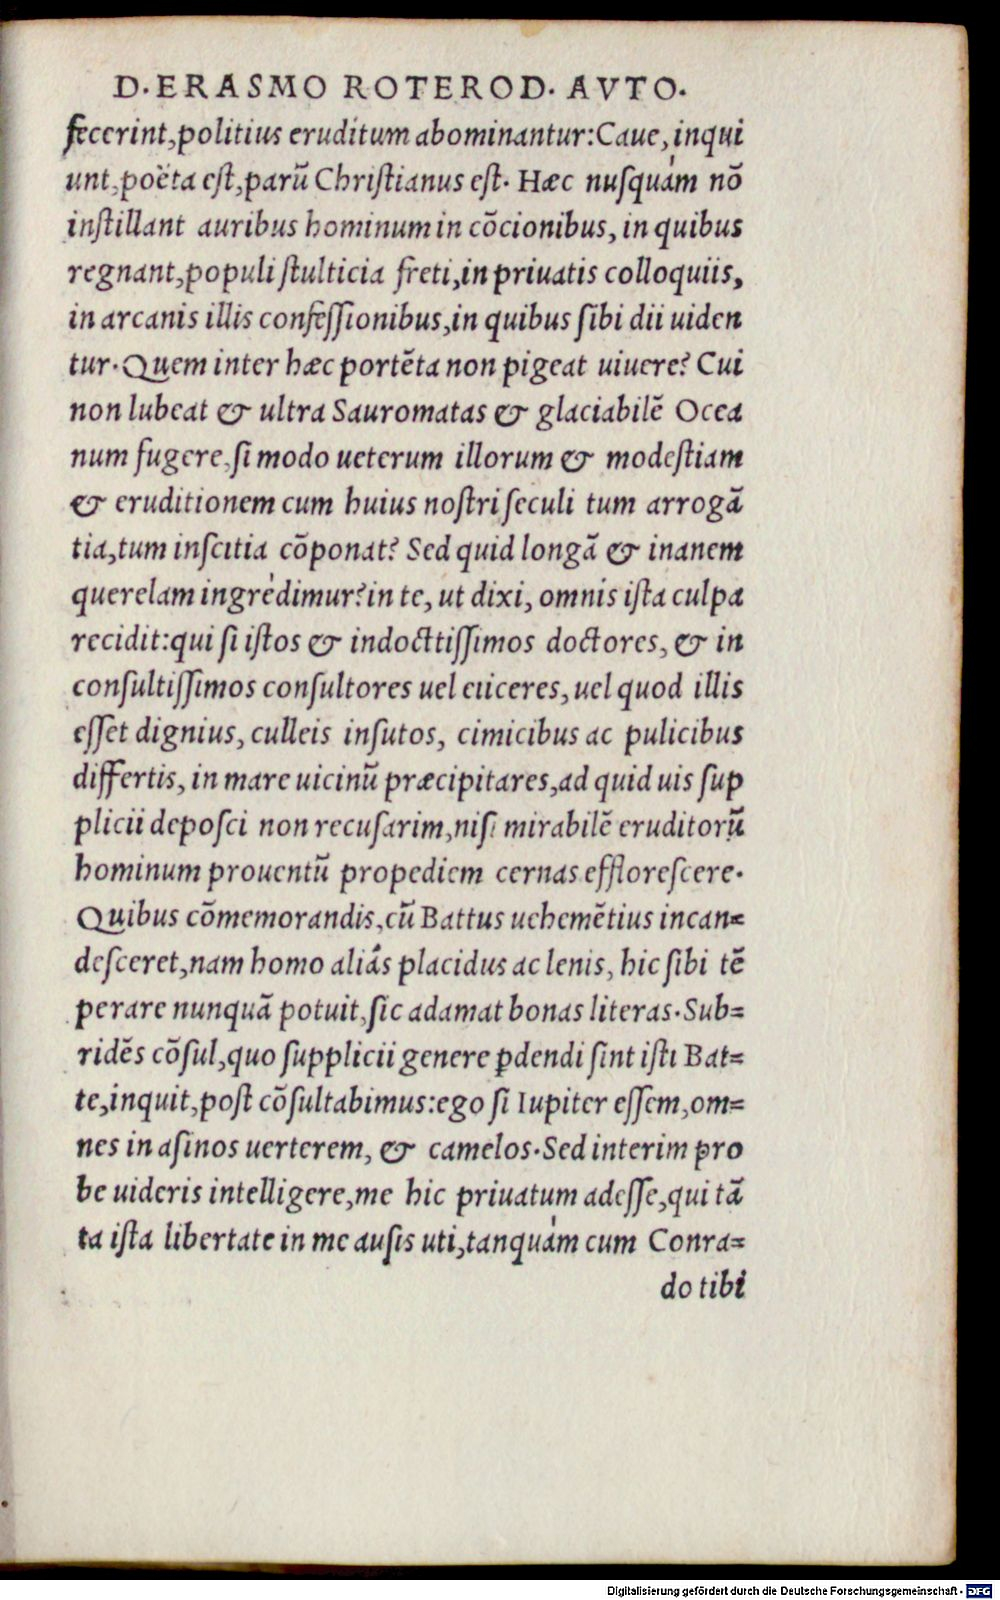 D. ERASMO ROTEROD. AVTO.
fecerint, politius eruditum abominantur: Caue, inqui
unt, poëta est, parũ Christianus est. Hæc nusquàm nõ
instillant auribus hominum in cõcionibus, in quibus
regnant, populi stulticia freti, in priuatis colloquiis,
in arcanis illis confessionibus, in quibus sibi dii uiden
tur. Quem inter hæc portẽta non pigeat uiuere? Cui
non lubeat & ultra Sauromatas & glaciabilẽ Ocea
num fugere, si modo ueterum illorum & modestiam
& eruditionem cum huius nostri seculi tum arrogã
tia, tum inscitia cõponat? Sed quid longã & inanem
querelam ingrèdimur? in te, ut dixi, omnis ista culpa
recidit: qui si istos & indocttissimos doctores, & in
consultissimos consultores uel eiiceres, uel quod illis
esset dignius, culleis insutos, cimicibus ac pulicibus
differtis, in mare uicinũ præcipitares, ad quid uis sup
plicii deposci non recusarim, nisi mirabilẽ eruditorũ
hominum prouentũ propediem cernas efflorescere.
Quibus cõmemorandis, cũ Battus uehemẽtius incan=
desceret, nam homo aliâs placidus ac lenis, hic sibi tẽ
perare nunquã potuit, sic adamat bonas literas. Sub=
ridẽs cõsul, quo supplicii genere ꝑdendi sint isti Bat=
te, inquit, post cõsultabimus: ego si Iupiter essem, om=
nes in asinos uerterem, & camelos. Sed interim pro
be uideris intelligere, me hic priuatum adesse, qui tã
ta ista libertate in me ausis uti, tanquàm cum Conra=
do tibi
Digitalisierung gefördert durch die Deutsche Forschungsgemeinschaft - DFG